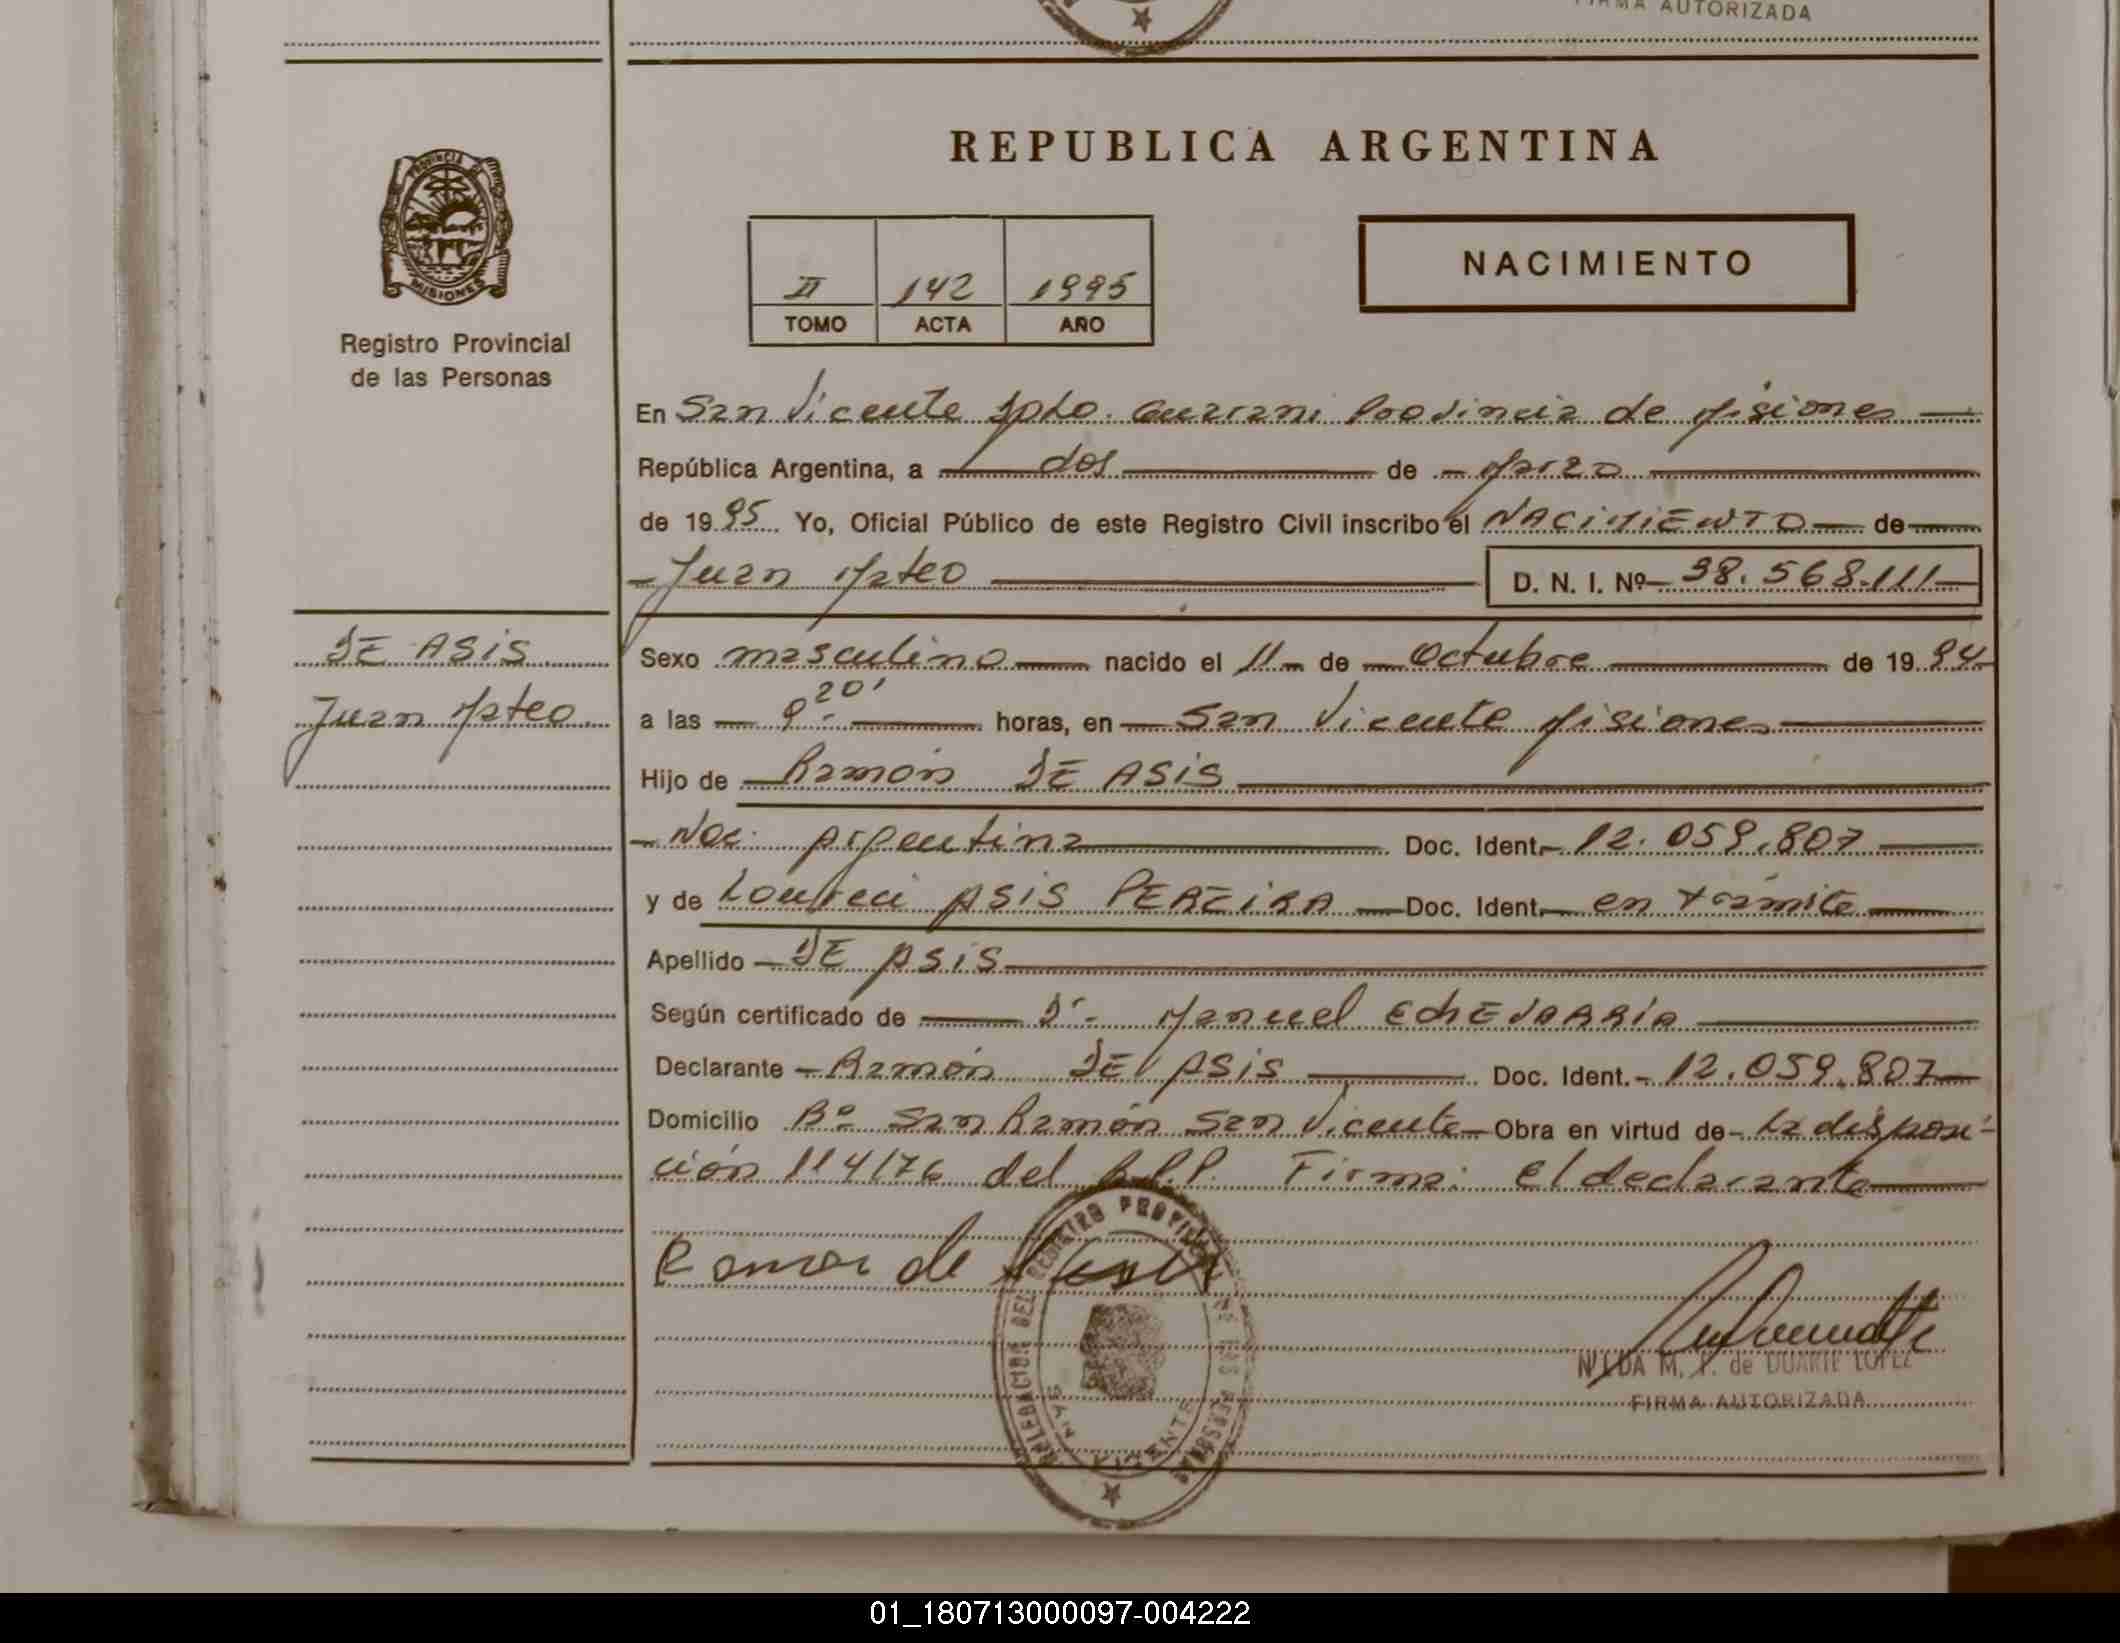 FIRMA AUTORIZADA
PROVINCIA DE
MISIONES
Registro Provincial
de las Personas
REPUBLICA ARGENTINA
II 142 1995
TOMO ACTA AÑO
NACIMIENTO
En San Vicente Dpto. Guarani Provincia de Misiones
República Argentina, a dos de Marzo
de 1995 Yo, Oficial Público de este Registro Civil inscribo el NACIMIENTO de
Juan Mateo D. N. I. Nº 38.568.111
DE ASIS
Juan Mateo
Sexo masculino nacido el 11 de Octubre de 1994
a las 9 20' horas, en San Vicente Misiones
Hijo de Ramón DE ASIS
Nac. Argentina Doc. Ident. 12.059.807
y de ASIS PEREIRA Doc. Ident. en trámite
Apellido DE ASIS
Según certificado de Dr. Manuel ECHEVARRÍA
Declarante Ramón DE ASIS Doc. Ident. 12.059.807
Domicilio Bº San Ramón San Vicente Obra en virtud de la disposi-
ción 114/76 del R.P.P. Firma: El declarante
Ramon de
DELEGACION DEL REGISTRO PROVINCIAL DE LAS PERSONAS
SAN VICENTE
NILDA M. de DUARTE LOPEZ
FIRMA AUTORIZADA
01_180713000097-004222